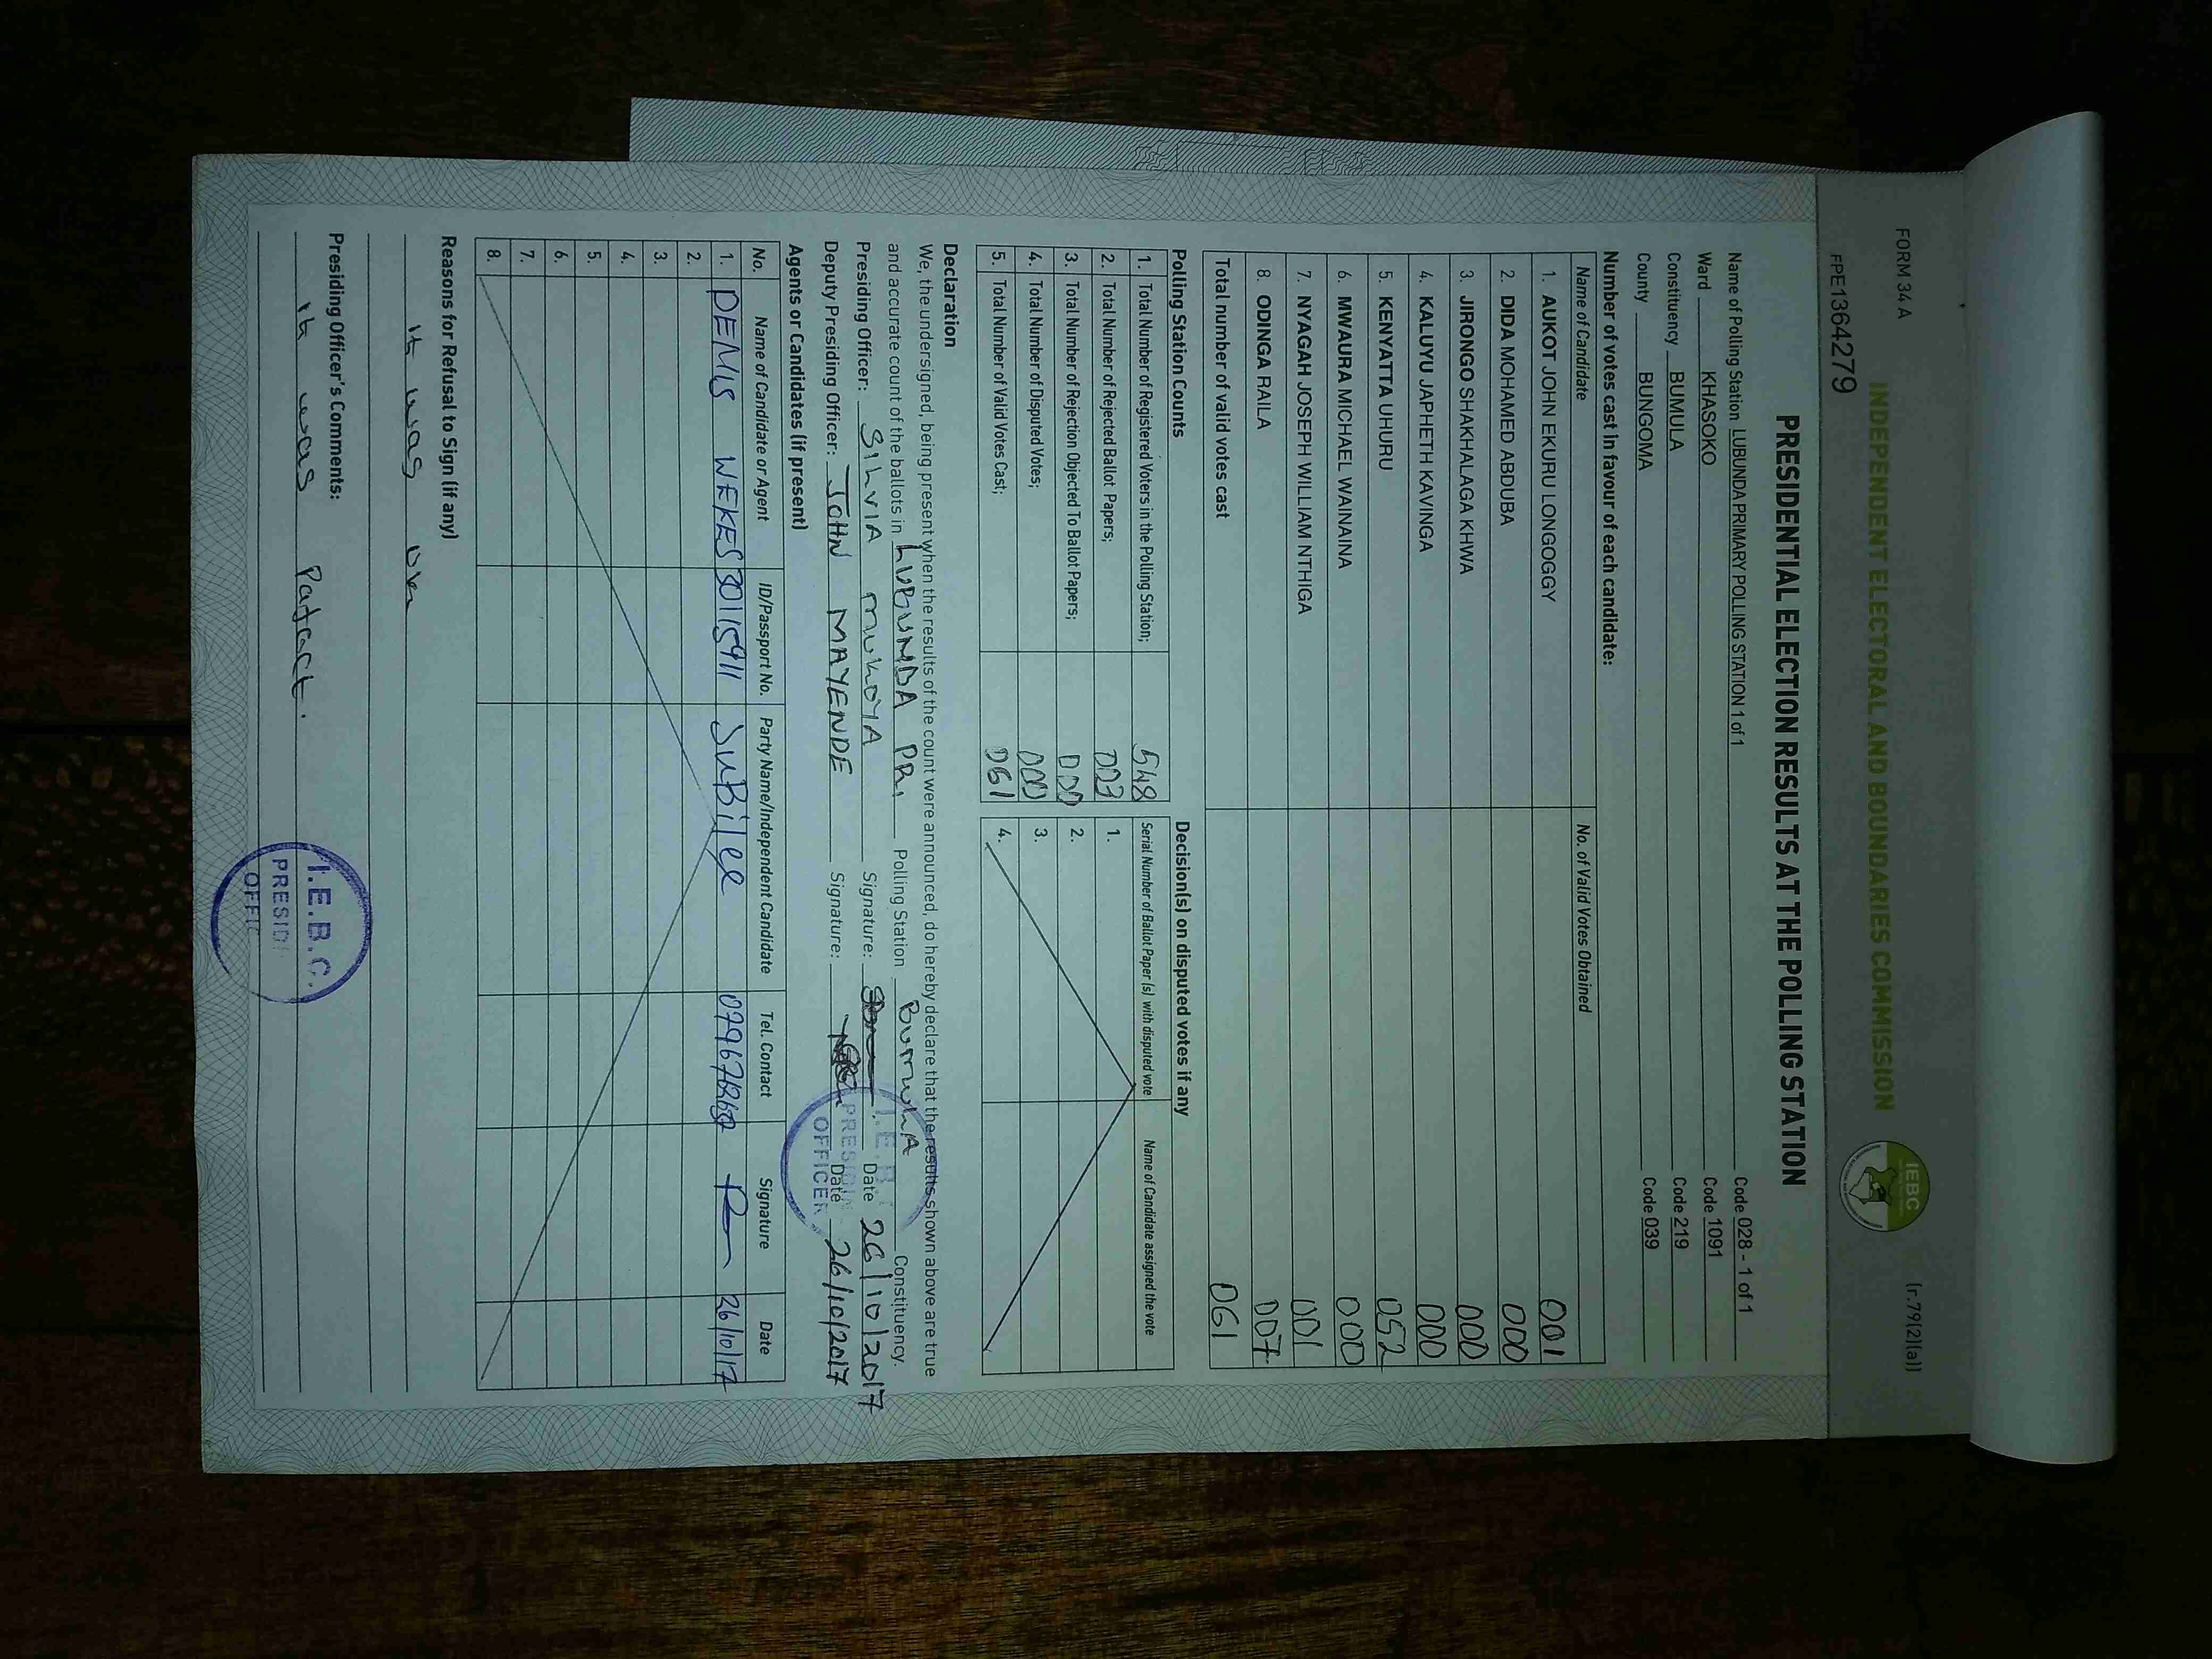 FORM 34 A
(r.79(2)(a))
INDEPENDENT ELECTORAL AND BOUNDARIES COMMISSION
IEBC
FPE1364279
PRESIDENTIAL ELECTION RESULTS AT THE POLLING STATION
Name of Polling Station LUBUNDA PRIMARY POLLING STATION 1 of 1 Code 028 - 1 of 1
Ward KHASOKO Code 1091
Constituency BUMULA Code 219
County BUNGOMA Code 039
Number of votes cast in favour of each candidate:
Name of Candidate No. of Valid Votes Obtained
1. AUKOT JOHN EKURU LONGOGGY 001
2. DIDA MOHAMED ABDUBA 000
3. JIRONGO SHAKHALAGA KHWA 000
4. KALUYU JAPHETH KAVINGA 000
5. KENYATTA UHURU 052
6. MWAURA MICHAEL WAINAINA 000
7. NYAGAH JOSEPH WILLIAM NTHIGA 001
8. ODINGA RAILA 007
Total number of valid votes cast 061
Polling Station Counts
1. Total Number of Registered Voters in the Polling Station; 548
2. Total Number of Rejected Ballot Papers; 003
3. Total Number of Rejection Objected To Ballot Papers; 000
4. Total Number of Disputed Votes; 000
5. Total Number of Valid Votes Cast; 061
Decision(s) on disputed votes if any
Serial Number of Ballot Paper (s) with disputed vote Name of Candidate assigned the vote
1.
2.
3.
4.
Declaration
We, the undersigned, being present when the results of the count were announced, do hereby declare that the results shown above are true
and accurate count of the ballots in LUBUNDA PRI Polling Station BUMULA Constituency.
Presiding Officer: SILVIA MUKOYA Signature: Date 26/10/2017
Deputy Presiding Officer: JOHN MAYENDE Signature: Date 26/10/2017
I.E.B.C.
PRESIDING
OFFICER
Agents or Candidates (if present)
No. Name of Candidate or Agent ID/Passport No. Party Name/Independent Candidate Tel. Contact Signature Date
1. DENIS WEKES 30115911 JuBilee 26/10/17
2.
3.
4.
5.
6.
7.
8.
Reasons for Refusal to Sign (if any)
It was
Presiding Officer's Comments:
It was Pafact.
I.E.B.C.
PRESIDI
OFFIC